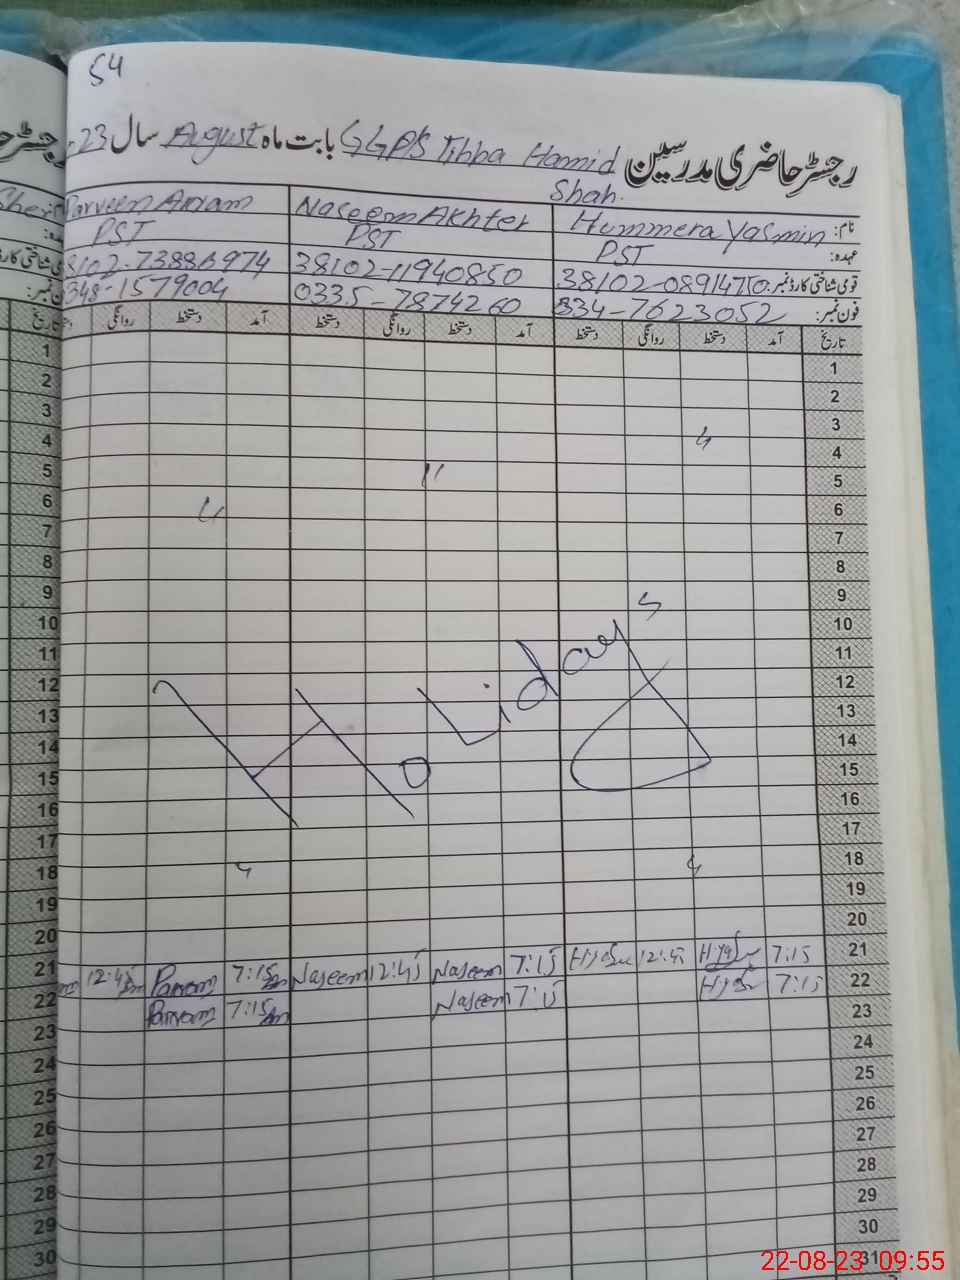 54
رجسٹر حاضری مدرسین GGPS Tibba Hamid Shah. بابت ماہ August سال 23
نام: Hummera Yasmin Naseem Akhter Parveen
عہدہ: PST PST PST
قومی شناختی کارڈ نمبر: 38102-11940850
فون نمبر: 334-7623052 0335-7874260 348-1579004
تاریخ آمد دستخط روانگی دستخط آمد دستخط روانگی دستخط آمد دستخط روانگی
1
2
3
4
5
6
7
8
9
10
11
12
13
14
15
16
17
18
19
20
Holidays
21 7:15 12:45 7:15 Naseem 12:45 Naseem 7:15 12:45
22 7:15 7:15 Naseem 7:15
23
24
25
26
27
28
29
30
31
22-08-23 09:55